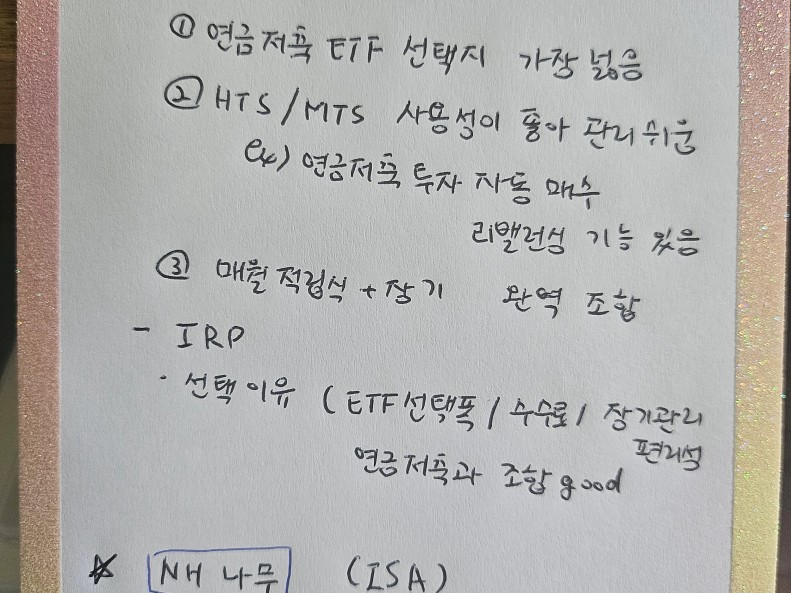 ① 연금저축 ETF 선택지 가장 넓음
② HTS/MTS 사용성이 좋아 관리 쉬운
ex) 연금저축 투자 자동 매수
리밸런싱 기능 있음
③ 매월 적립식 + 장기 완벽 조합
- IRP
· 선택이유 (ETF선택폭 / 수수료 / 장기관리
편리성
연금저축과 조합 good
☆ NH 나무 (ISA)